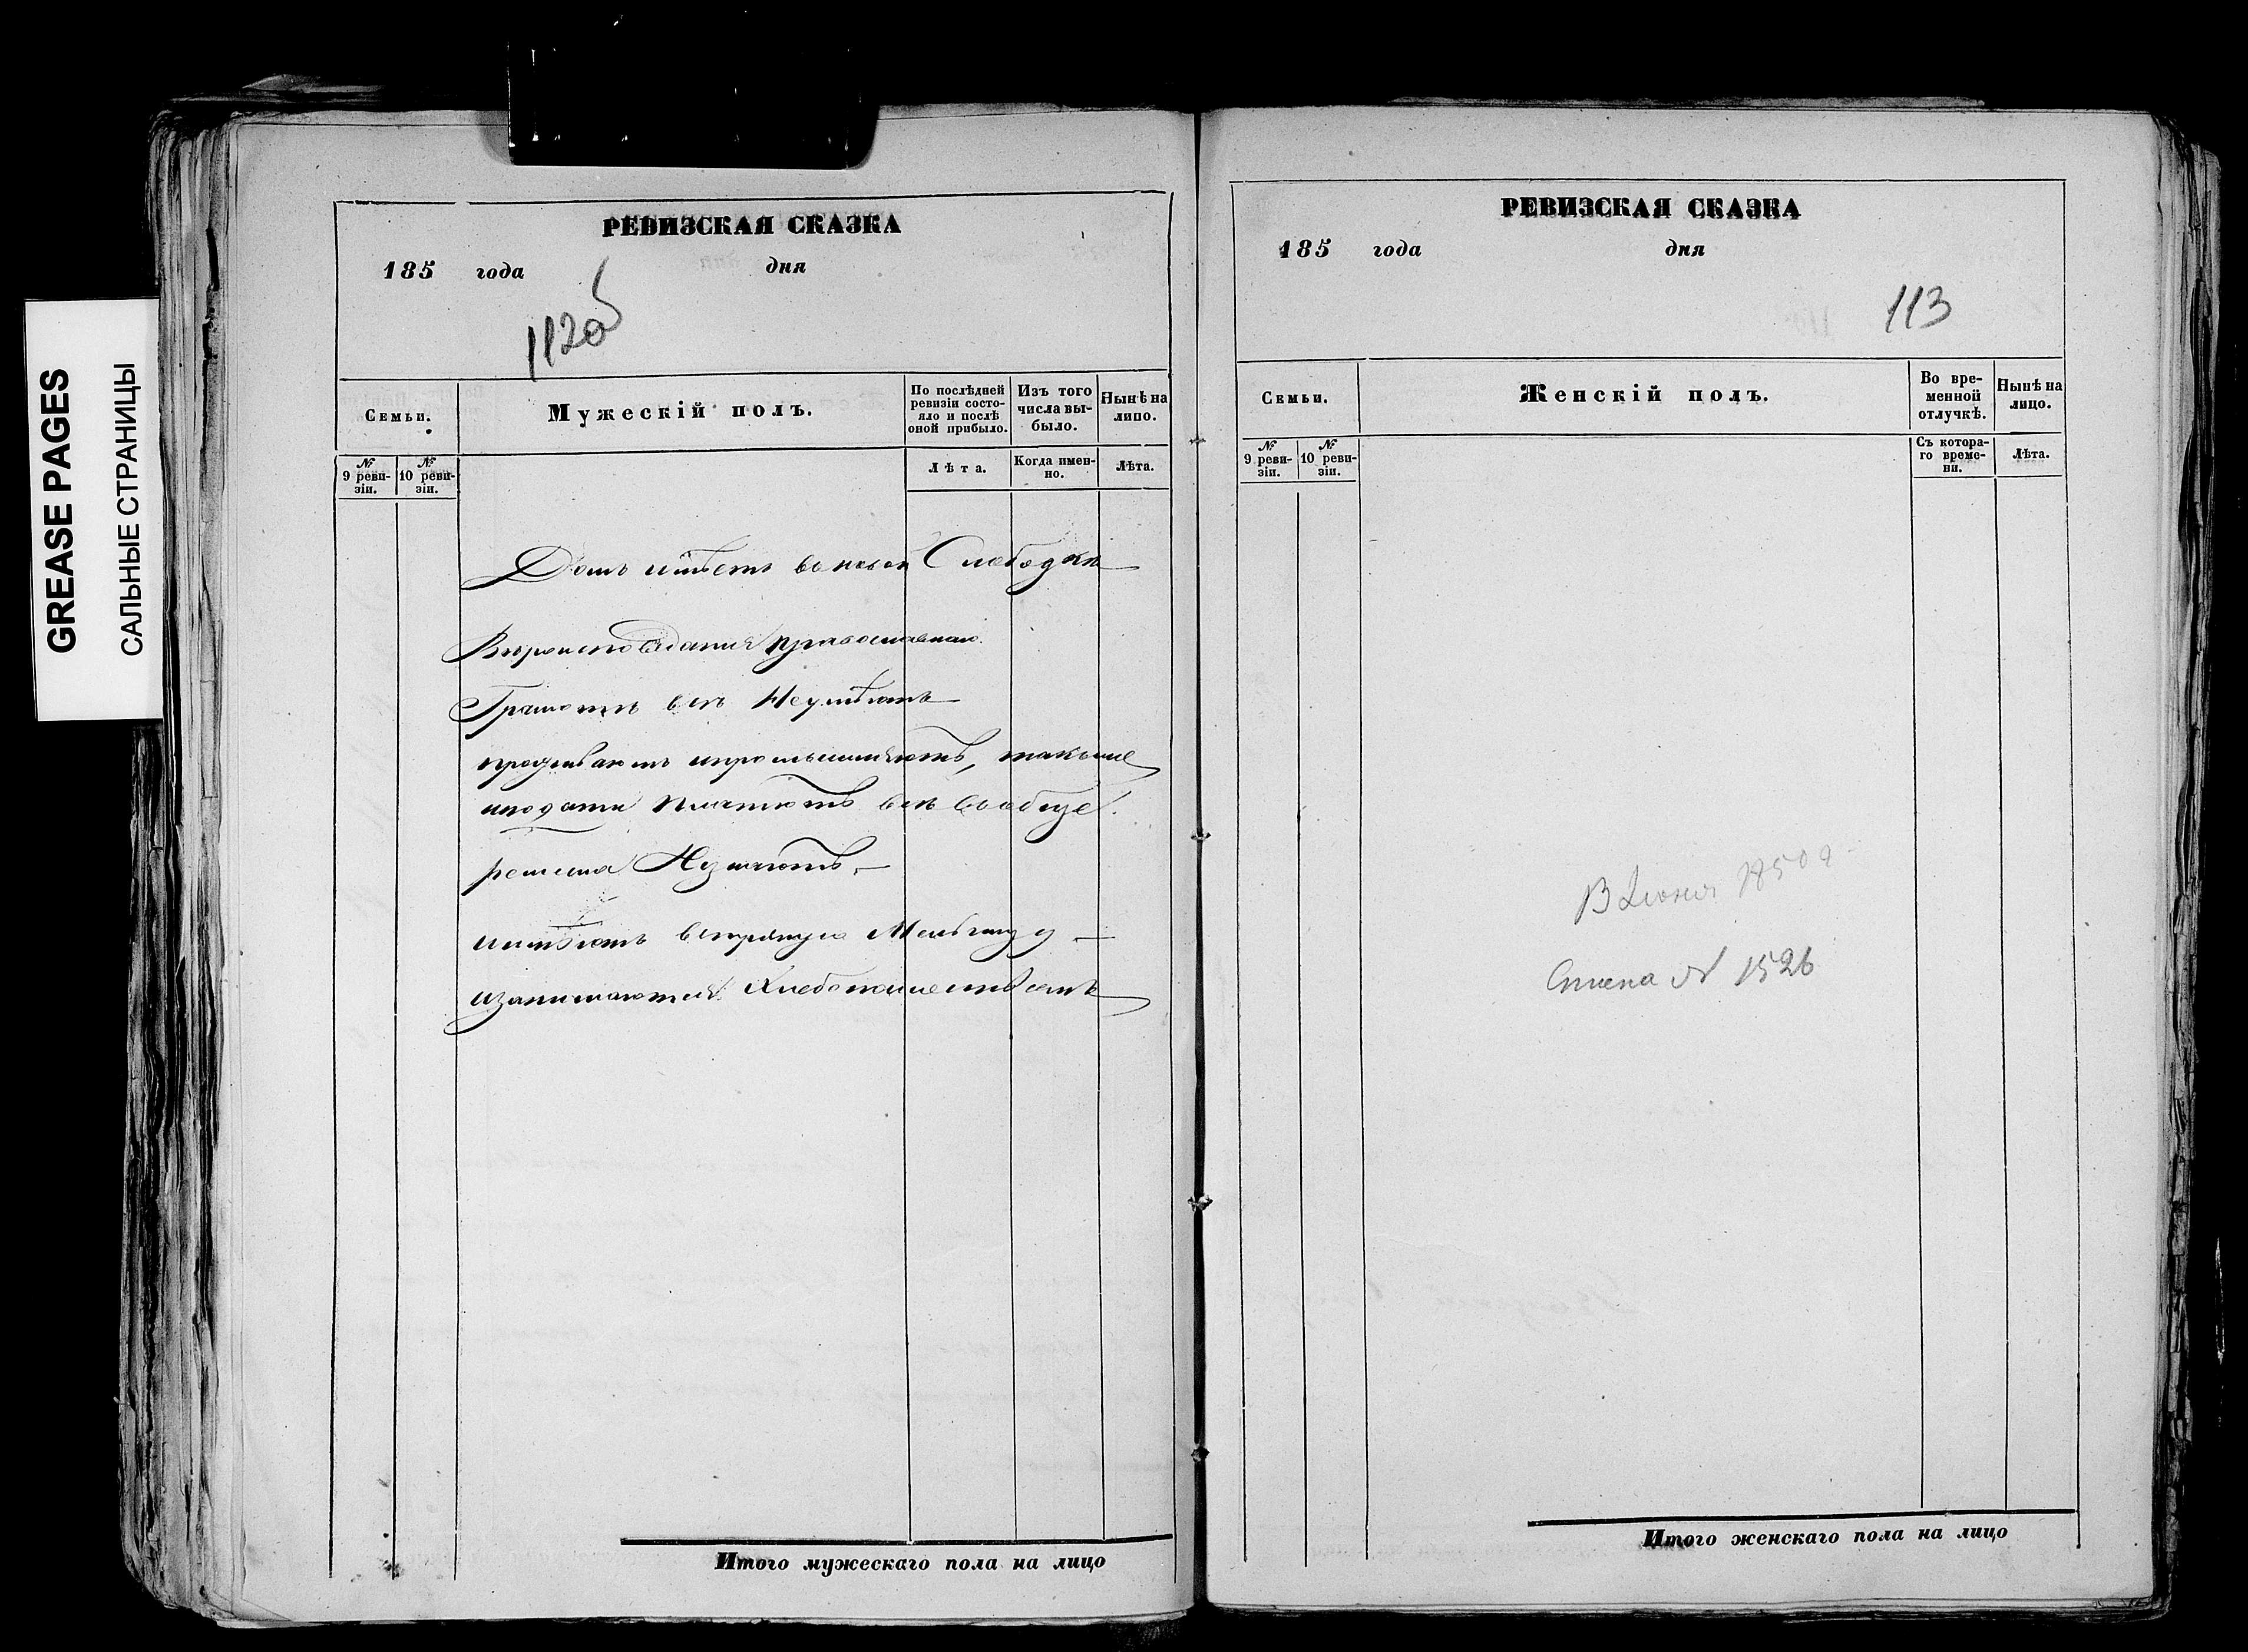 GREASE PAGES
САЛЬНЫЕ СТРАНИЦЫ
РЕВИЗСКАЯ СКАЗКА
185 года дня
112об
Семьи.
Мужескій полъ.
По послѣдней ревизіи состояло и послѣ оной прибыло.
Изъ того числа выбыло.
Нынѣ на лицо.
№ 9 ревизіи.
№ 10 ревизіи.
Лѣта.
Когда именно.
Лѣта.
Домъ имѣетъ Слободкѣ
Вѣроисповѣданія православнаго
Грамотѣ всѣ Неумѣютъ
проживаютъ ипромышляютъ, такъже
иподати платютъ всѣ вообще.
ремесла Незнаютъ —
имѣютъ Мельницу —
изанимаются Хлебопашествомъ
Итого мужескаго пола на лицо
РЕВИЗСКАЯ СКАЗКА
185 года дня
113
Семьи.
Женскій полъ.
Во временной отлучкѣ.
Нынѣ на лицо.
№ 9 ревизіи.
№ 10 ревизіи.
Съ котораго времени.
Лѣта.
1850 г
№ 1526
Итого женскаго пола на лицо